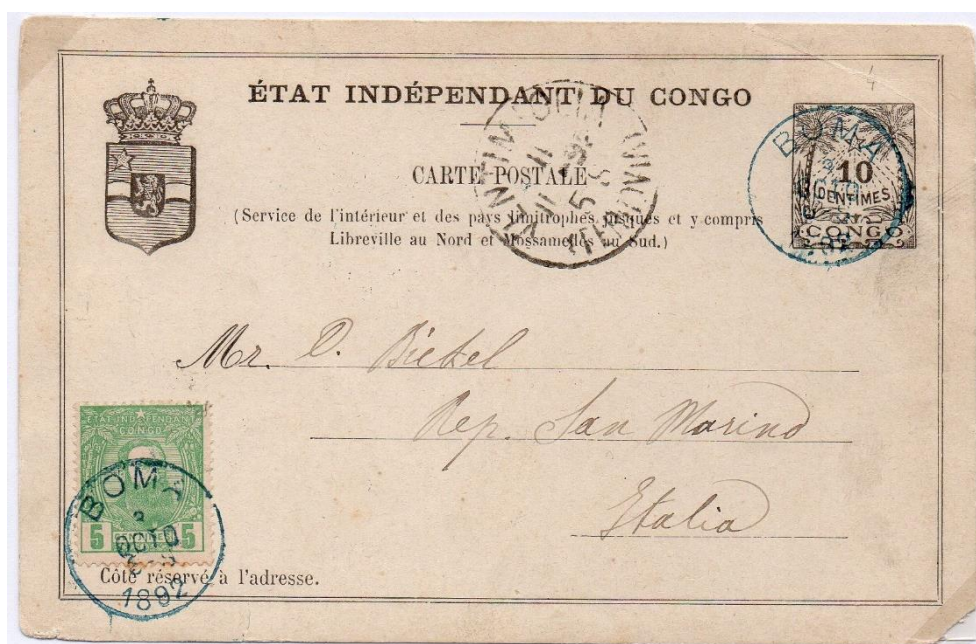 ÉTAT INDÉPENDANT DU CONGO
CARTE POSTALE
(Service de l'intérieur et des pays limitrophes jusques et y compris
Libreville au Nord et Mossamedes au Sud.)
10
CENTIMES
CONGO
BOMA
Mr. D. Bickel
Rep. San Marino
Italia
ETAT INDEPENDANT
CONGO
5 5
BOMA
OCTO
1892
Côté réservé à l'adresse.